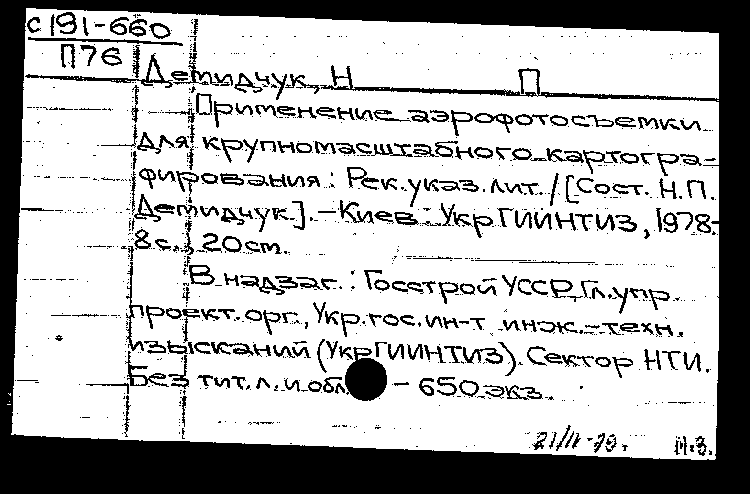 с191-660
П76
Демидчук, Н П
Применение аэрофотосъемки
для крупномасштабного картогра-
фирования: Рек. указ. лит. / [Сост. Н.П.
Демидчук]. – Киев: УкрГИИНТИЗ, 1978.-
8 с.; 20 см.
В надзаг.: Госстрой УССР, Гл. упр.
проект. орг., Укр. гос. ин-т инж.-техн.
изысканий (УкрГИИНТИЗ). Сектор НТИ.
Без тит. л. и обл. – 650 экз.
м.з.